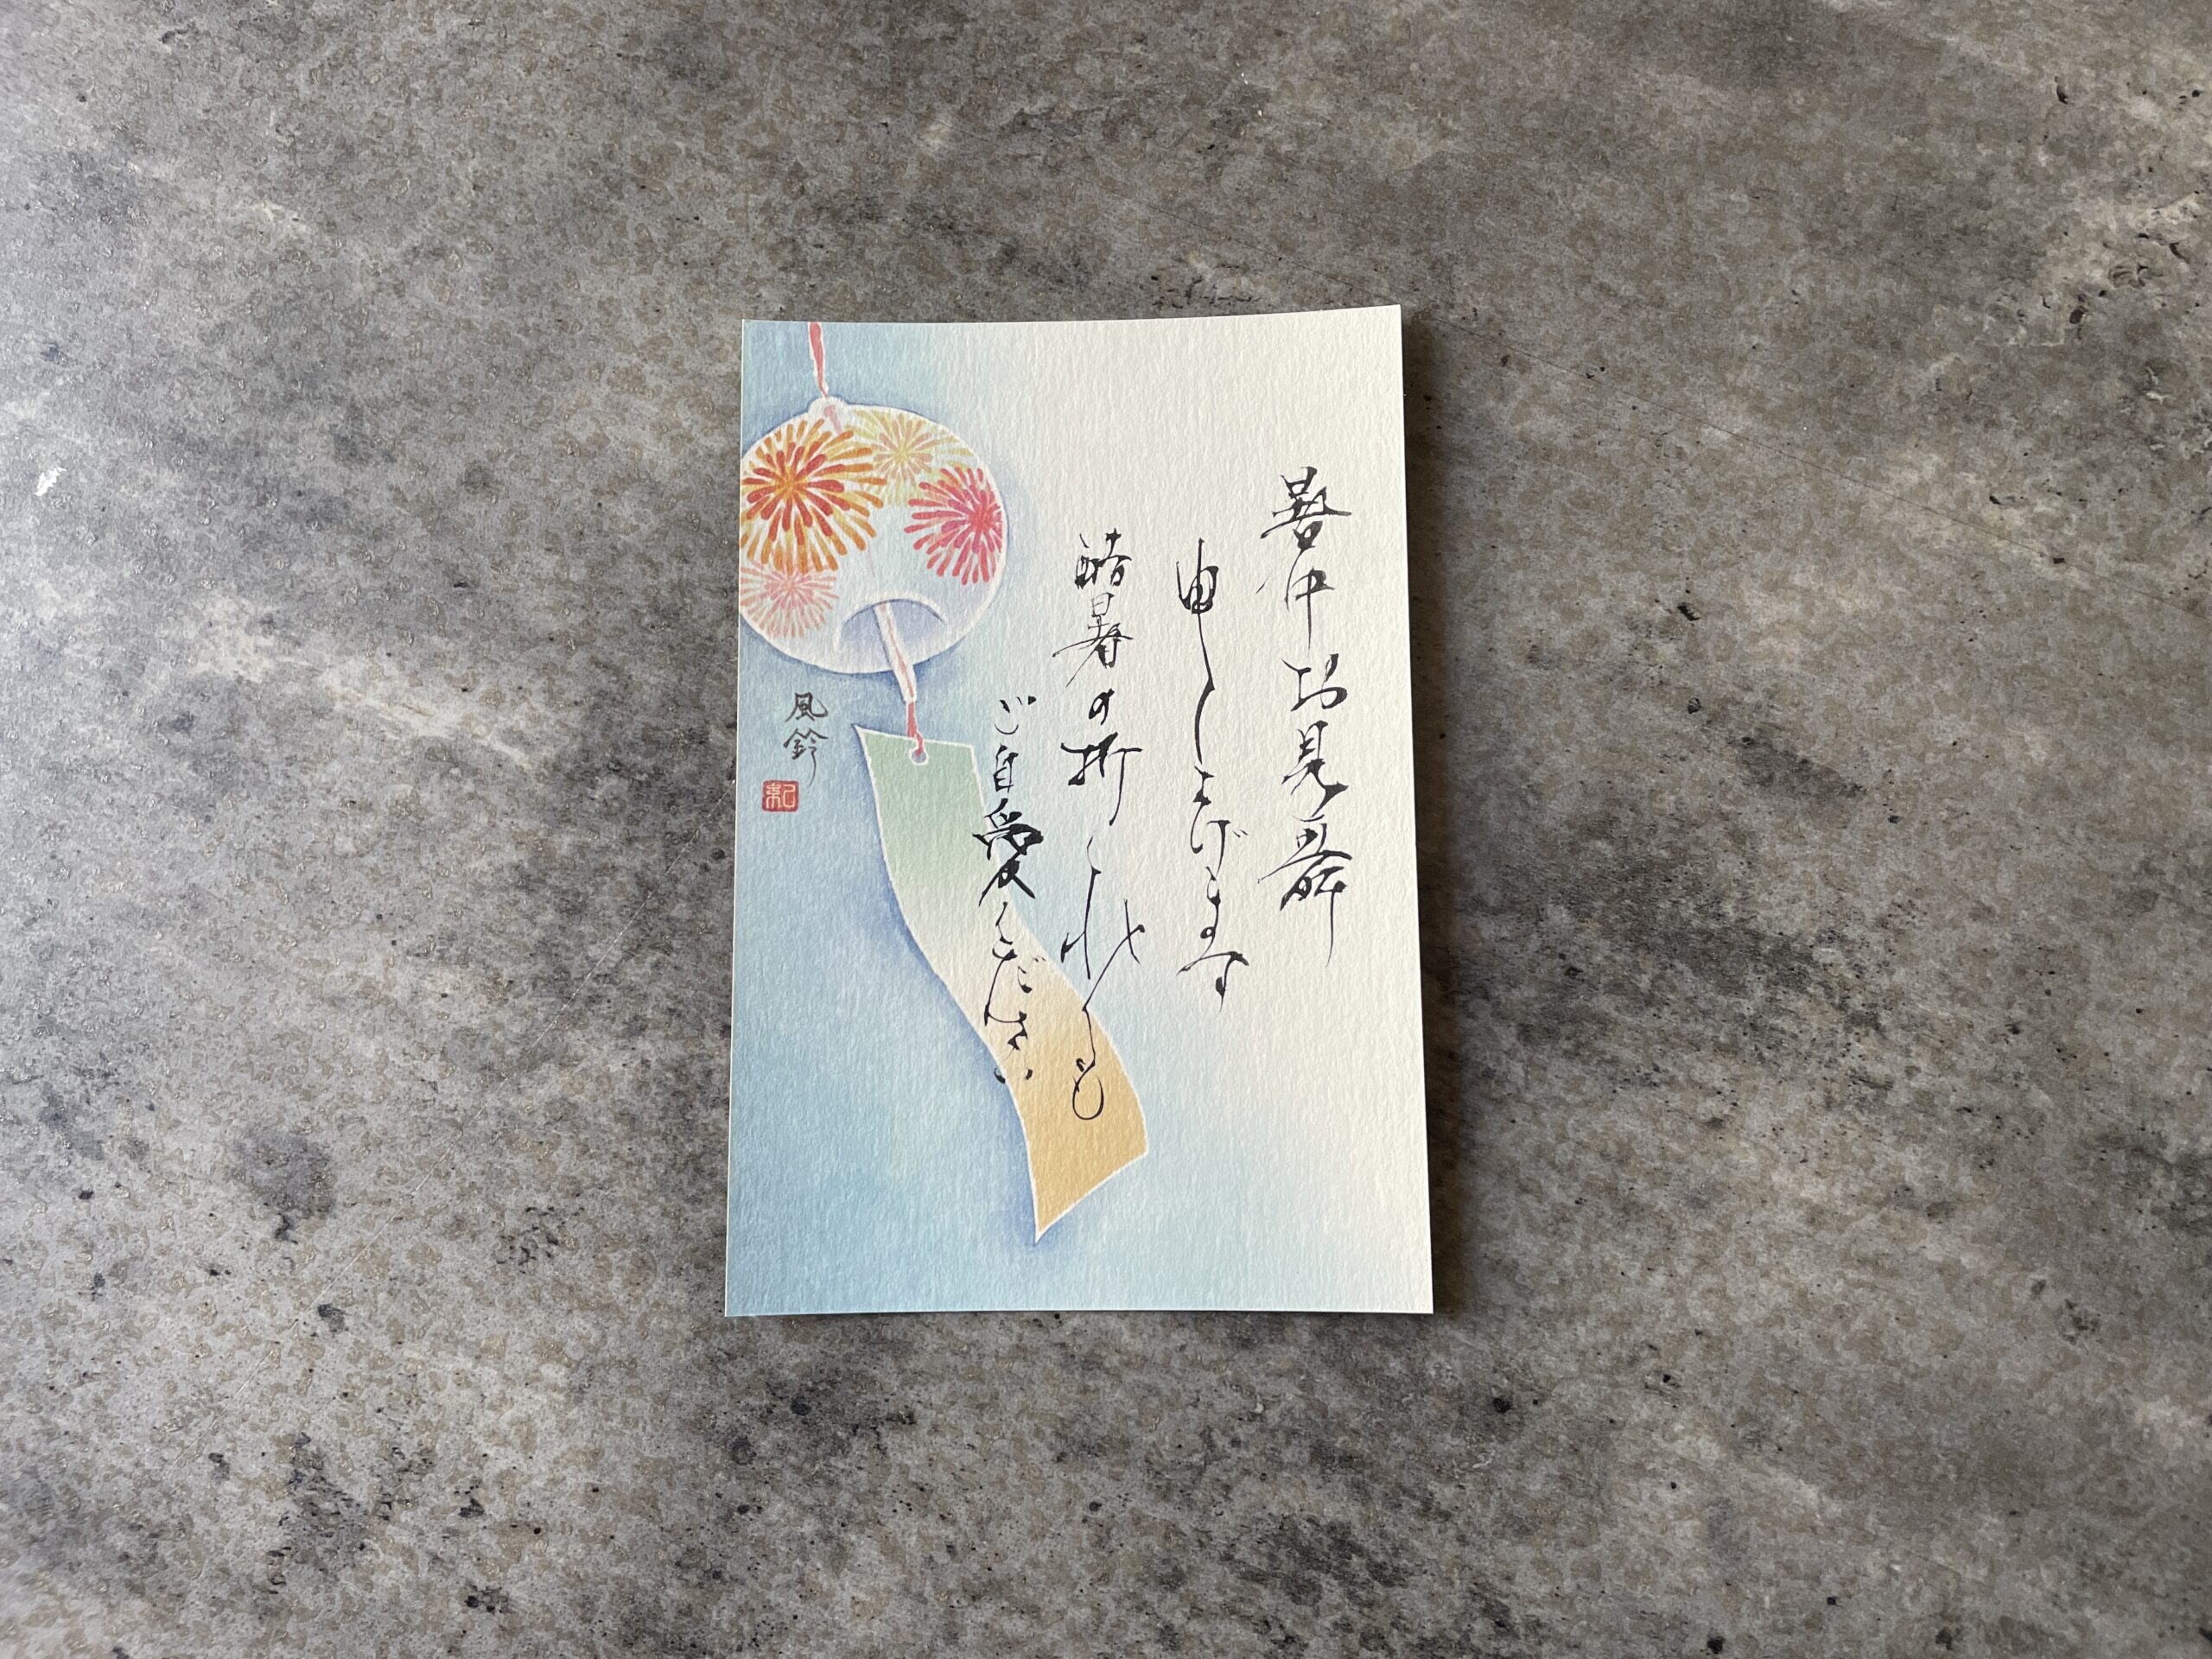 暑中お見舞
申し上げます
酷暑の折くれぐれも
ご自愛ください
風鈴
紀